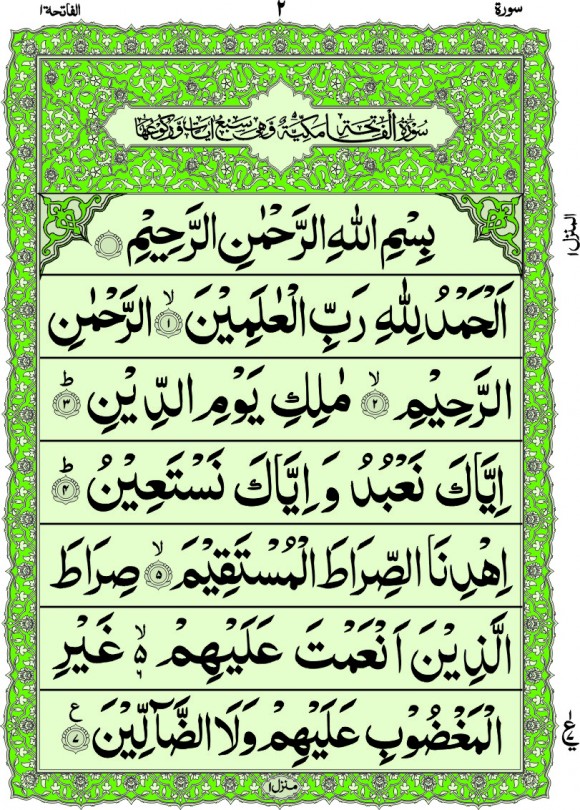 سورة ٢ الفاتحة ١
سُوْرَةُ الْفَاتِحَةِ مَكِّيَّةٌ وَّهِيَ سَبْعُ اٰيَاتٍ وَّرُكُوْعُهَا
بِسْمِ اللهِ الرَّحْمٰنِ الرَّحِيْمِ
المنزل ١
اَلْحَمْدُ لِلهِ رَبِّ الْعٰلَمِيْنَ ۙ ١ الرَّحْمٰنِ
الرَّحِيْمِ ۙ ٢ مٰلِكِ يَوْمِ الدِّيْنِ ؕ ٣
اِيَّاكَ نَعْبُدُ وَ اِيَّاكَ نَسْتَعِيْنُ ؕ ٤
اِهْدِنَا الصِّرَاطَ الْمُسْتَقِيْمَ ۙ ٥ صِرَاطَ
الَّذِيْنَ اَنْعَمْتَ عَلَيْهِمْ ۙ۬ ٦ غَيْرِ
الْمَغْضُوْبِ عَلَيْهِمْ وَلَا الضَّآلِّيْنَ ع ٧
منزل ١